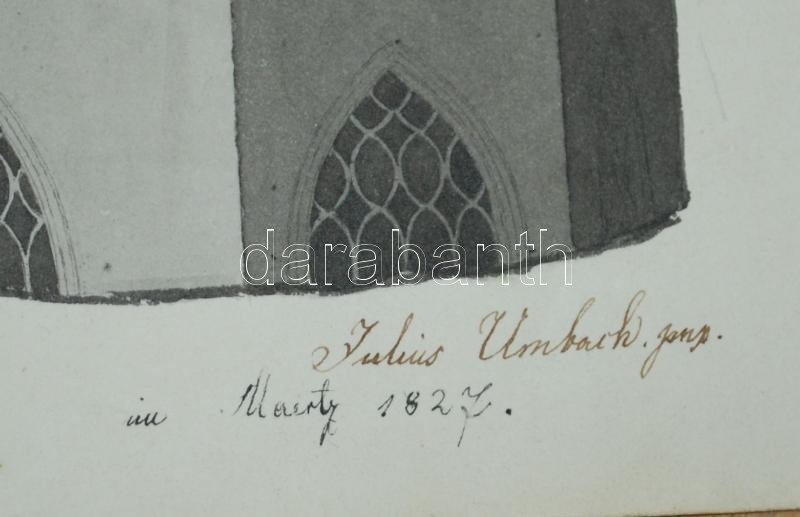 darabanth
Julius Umbach. pnx.
im Maertz 1827.